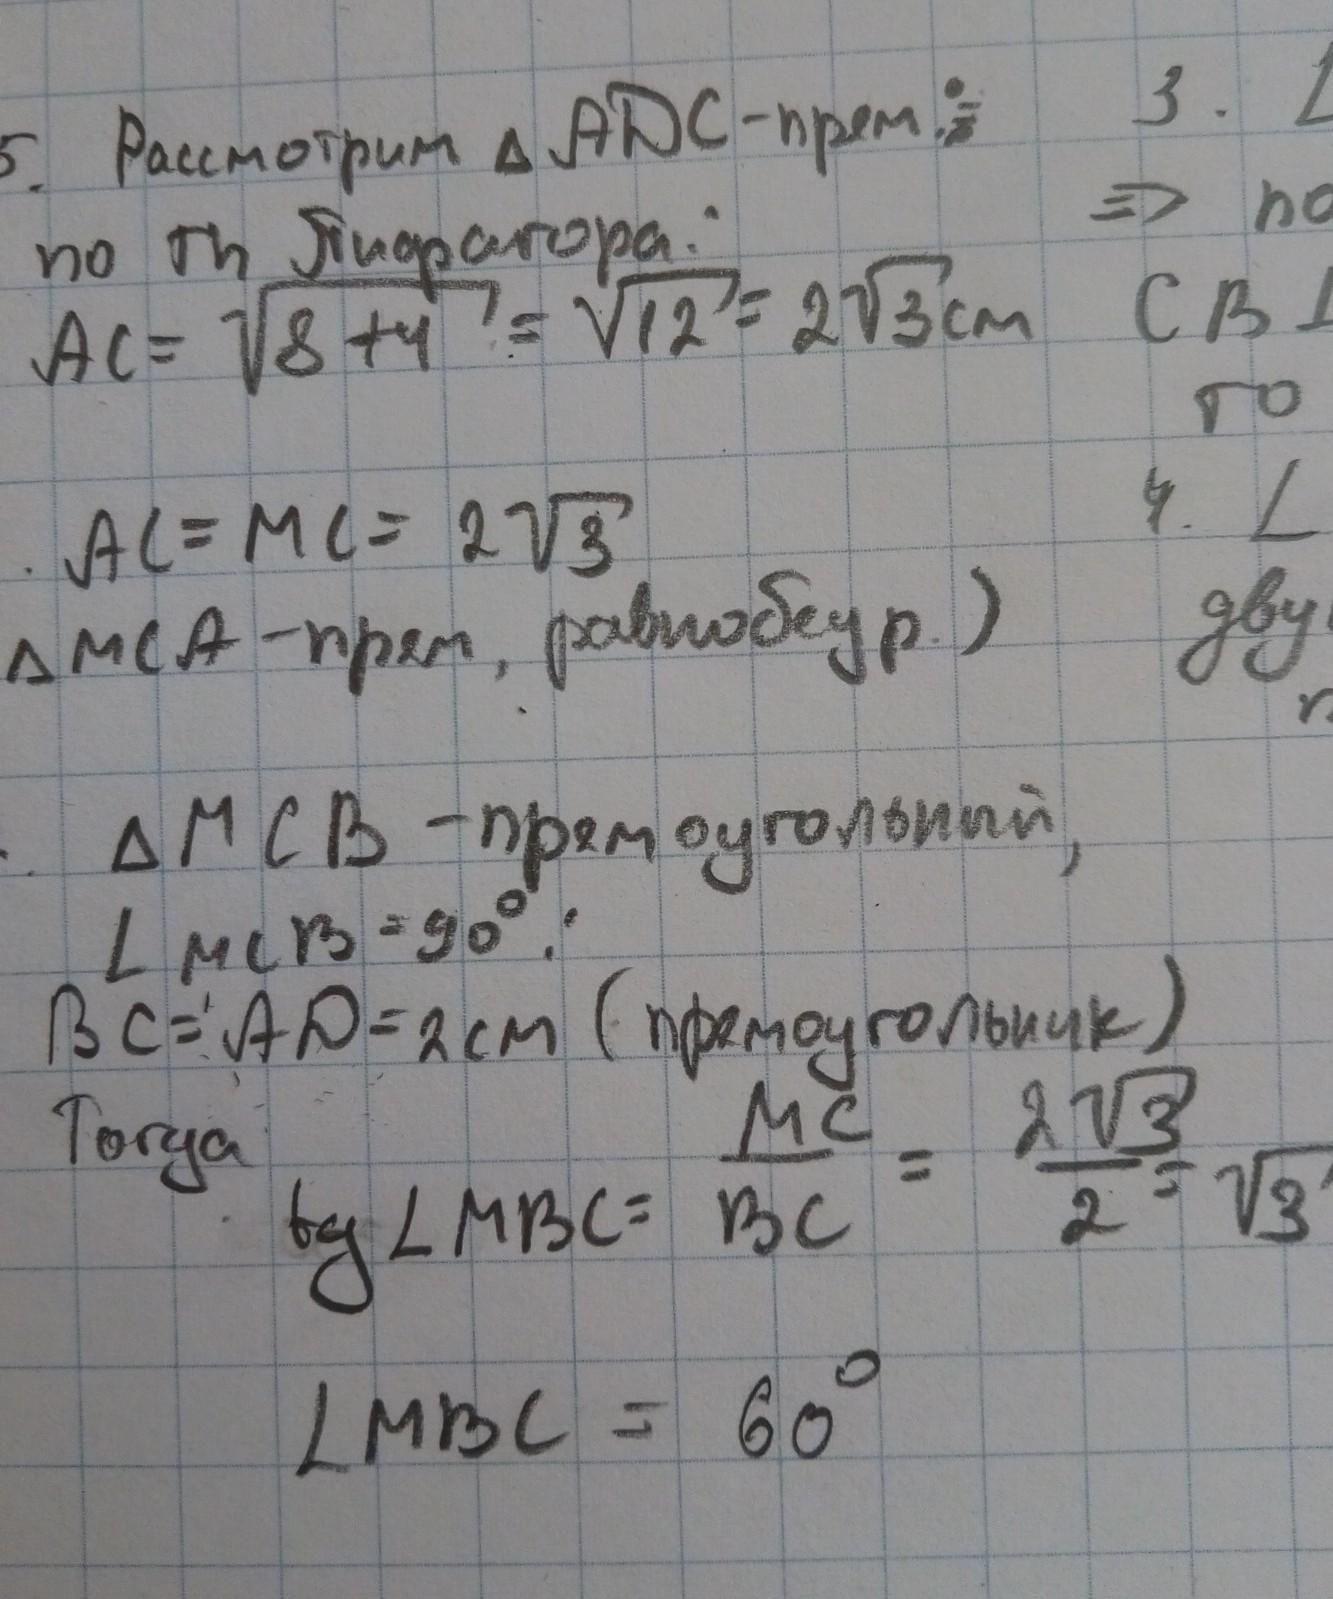 5. Рассмотрим △ ADC - прям.:
по th Пифагора:
AC = √8+4 = √12 = 2√3 см
. AC = MC = 2√3
△ MCA - прям, равнобедр.)
. △ MCB - прямоугольный,
∠ MCB = 90°:
BC = AD = 2 см (прямоугольник)
Тогда
tg ∠MBC = MC/BC = 2√3/2 = √3
∠MBC = 60°
3. ∠
=> по
CB ⊥
то
4. ∠
дву